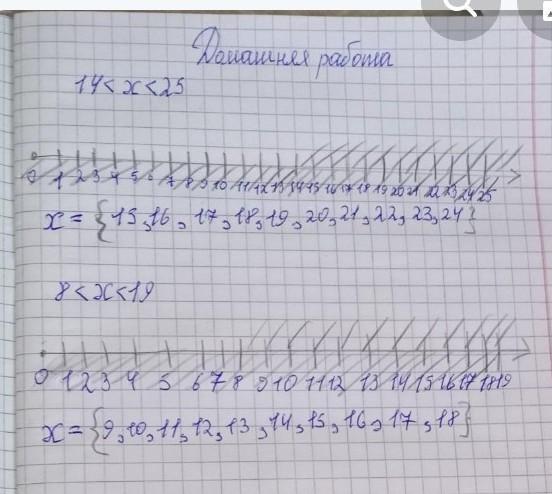 Домашняя работа
14 < x < 25
0 1 2 3 4 5 6 7 8 9 10 11 12 13 14 15 16 17 18 19 20 21 22 23 24 25
x = {15, 16, 17, 18, 19, 20, 21, 22, 23, 24}
8 < x < 19
0 1 2 3 4 5 6 7 8 9 10 11 12 13 14 15 16 17 18 19
x = {9, 10, 11, 12, 13, 14, 15, 16, 17, 18}